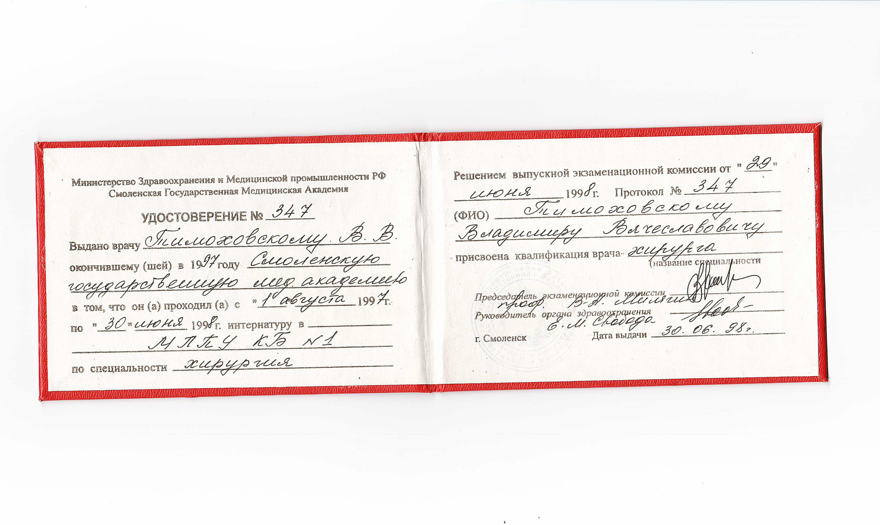 Министерство Здравоохранения и Медицинской промышленности РФ
Смоленская Государственная Медицинская Академия
УДОСТОВЕРЕНИЕ № 347
Выдано врачу Тимоховскому В. В.
окончившему (шей) в 1997 году Смоленскую
государственную мед академию
в том, что он (а) проходил (а) с "1" августа 1997г.
по "30" июня 1998г. интернатуру в
МЛПУ КБ №1
по специальности хирургия
Решением выпускной экзаменационной комиссии от "29"
июня 1998г. Протокол № 347
(ФИО) Тимоховскому
Владимиру Вячеславовичу
присвоена квалификация врача- хирурга
(название специальности
Председатель экзаменационной комиссии
проф. В.А.
Руководитель органа здравоохранения
Е.М. Свобода
г. Смоленск Дата выдачи 30.06.98г.